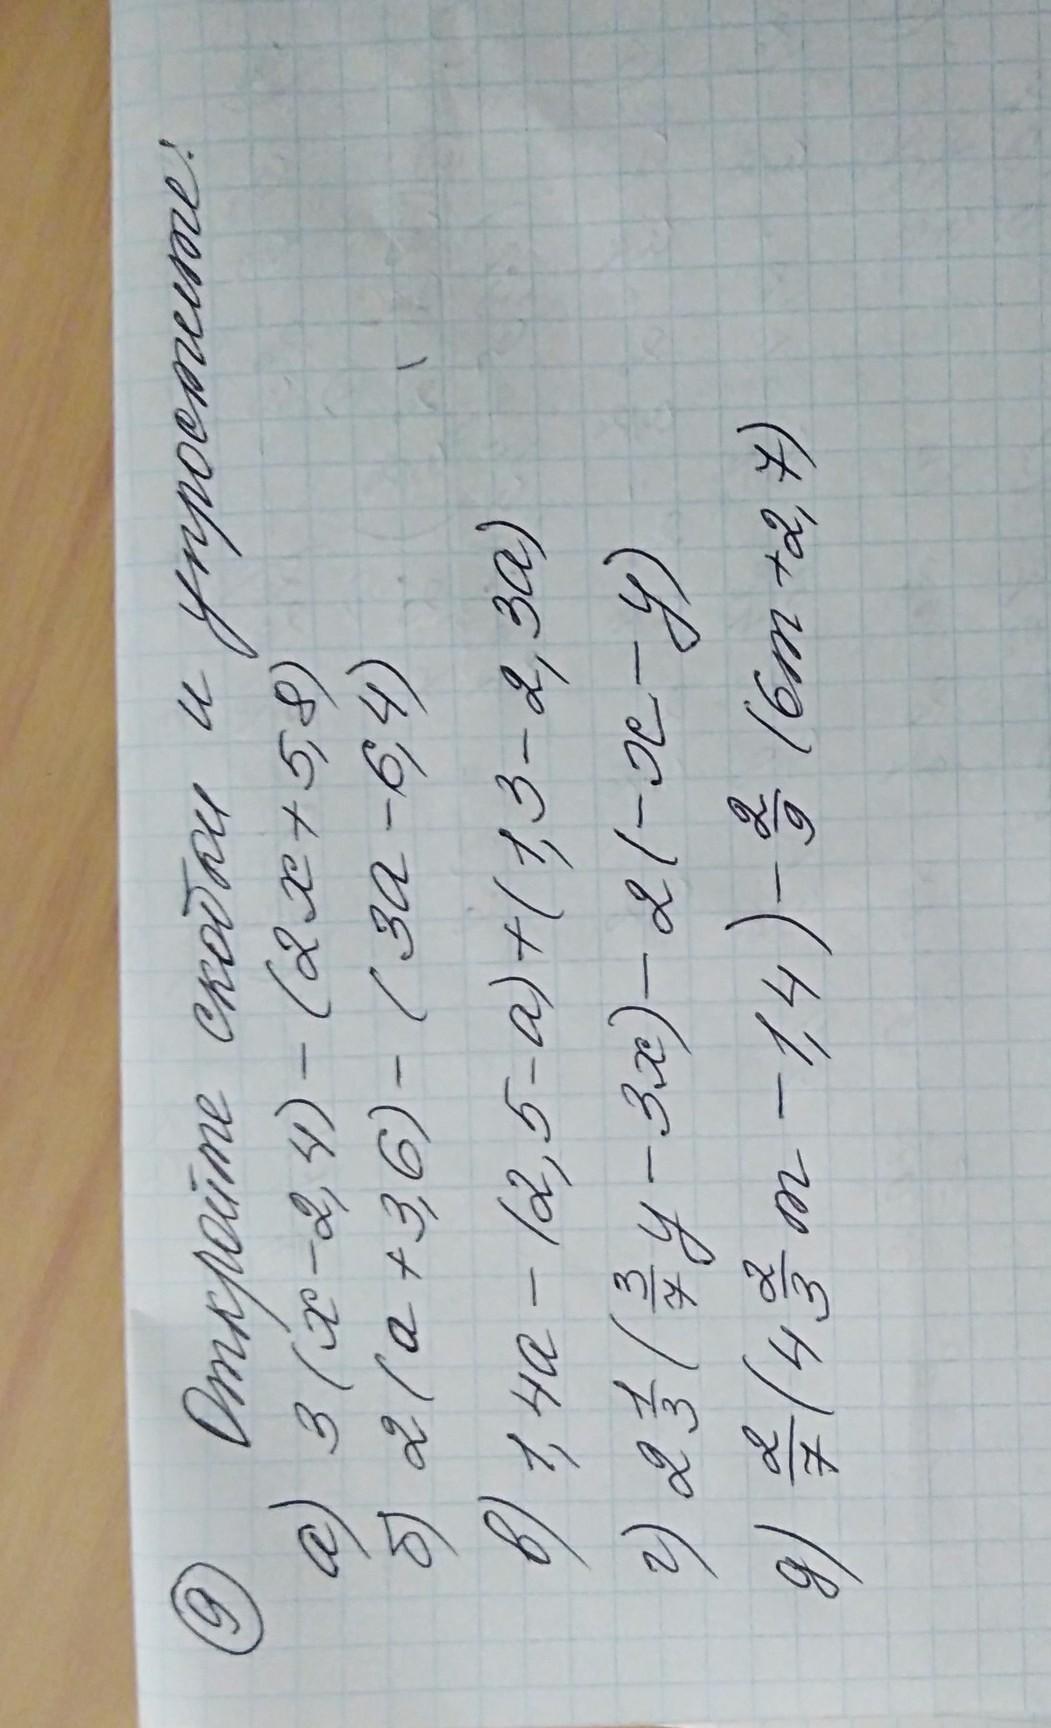 9 Откройте скобки и упростите:
а) 3(x-2,4)-(2x+5,8)
б) 2(a+3,6)-(3a-6,4)
в) 1,4a-(2,5-a)+(1,3-2,3a)
г) 2 1/3 (3/7 y-3x)-2(-x-y)
д) 2/7 (4 2/3 m-1,4)-2/9 (6m+2,7)